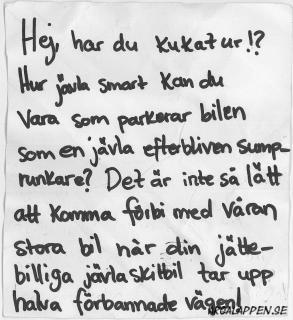 Hej, har du kukat ur!?
Hur jävla smart kan du
vara som parkerar bilen
som en jävla efterbliven sump-
runkare? Det är inte så lätt
att komma förbi med våran
stora bil när din jätte-
billiga jävla skitbil tar upp
halva förbannade vägen!
ARGALAPPEN.SE